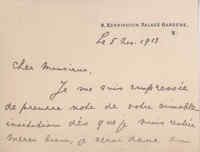 8, KENSINGTON PALACE GARDENS,
W.
Le 5 Nov. 1913
Cher Monsieur,
Je me suis empressée
de prendre note de votre aimable
invitation dès que je suis rentrée